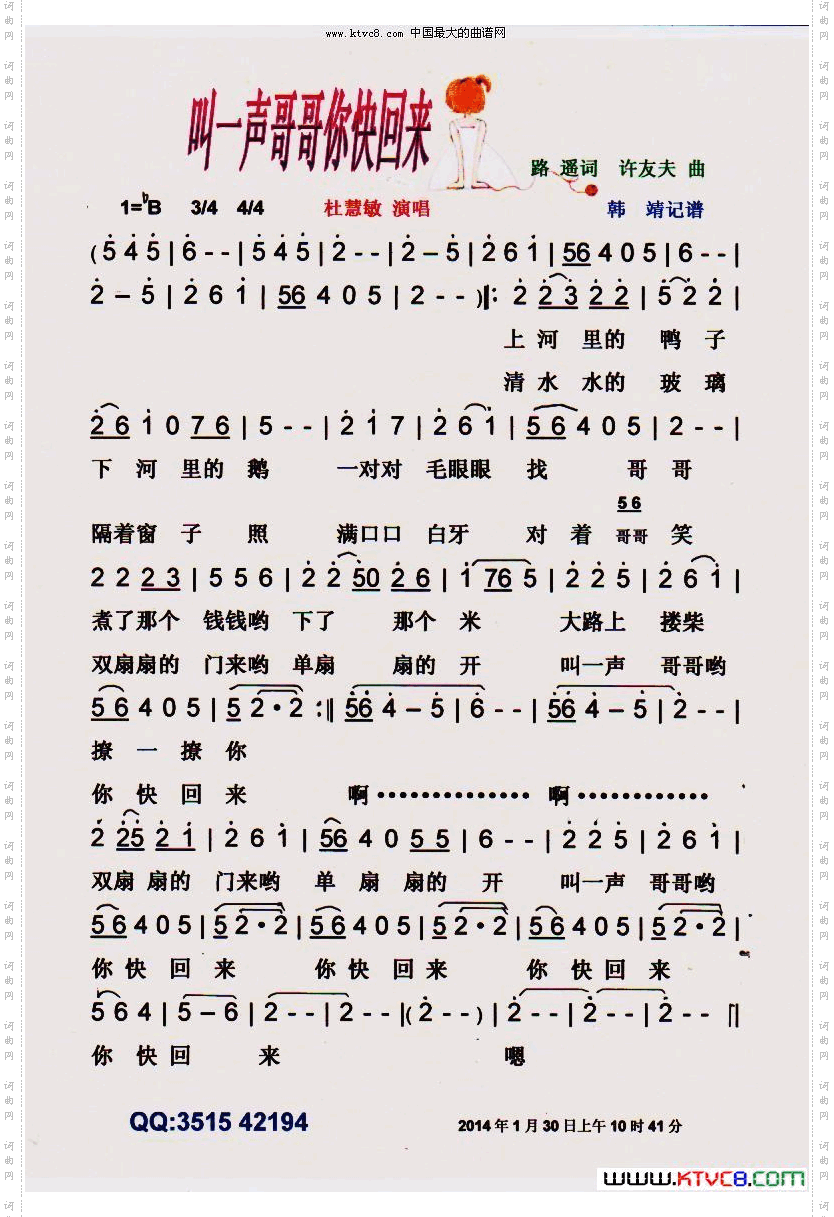 www.ktvc8.com 中国最大的曲谱网
叫一声哥哥你快回来
路 遥词 许友夫 曲
1=♭B 3/4 4/4 杜慧敏 演唱 韩 靖记谱
( 5 4 5 | 6 - - | 5 4 5 | 2 - - | 2 – 5 | 2 6 1 | 56 4 0 5 | 6 - - |
2 – 5 | 2 6 1 | 56 4 0 5 | 2 - - ) ‖: 2 2 3 2 2 | 5 2 2 |
上 河 里的 鸭 子
清 水 水的 玻 璃
2 6 1 0 7 6 | 5 - - | 2 1 7 | 2 6 1 | 5 6 4 0 5 | 2 - - |
下 河 里的 鹅 一对对 毛眼眼 找 哥 哥
5 6
隔着窗 子 照 满口口 白牙 对 着 哥哥 笑
2 2 2 3 | 5 5 6 | 2 2 50 2 6 | 1 76 5 | 2 2 5 | 2 6 1 |
煮了那个 钱钱哟 下了 那个 米 大路上 搂柴
双扇扇的 门来哟 单扇 扇的 开 叫一声 哥哥哟
5 6 4 0 5 | 5 2 • 2 :‖ 56 4 – 5 | 6 - - | 56 4 – 5 | 2 - - |
撩 一 撩 你
你 快 回 来 啊•••••••••••••• 啊••••••••••••
2 25 2 1 | 2 6 1 | 56 4 0 5 5 | 6 - - | 2 2 5 | 2 6 1 |
双扇 扇的 门来哟 单 扇 扇的 开 叫一声 哥哥哟
5 6 4 0 5 | 5 2 • 2 | 5 6 4 0 5 | 5 2 • 2 | 5 6 4 0 5 | 5 2 • 2 |
你 快 回 来 你 快 回 来 你 快 回 来
5 6 4 | 5 – 6 | 2 - - | 2 - - |( 2 - - ) | 2 - - | 2 - - | 2 - - ‖
你 快 回 来 嗯
QQ:3515 42194
2014 年 1 月 30 日上午 10 时 41 分
www.KTVC8.com